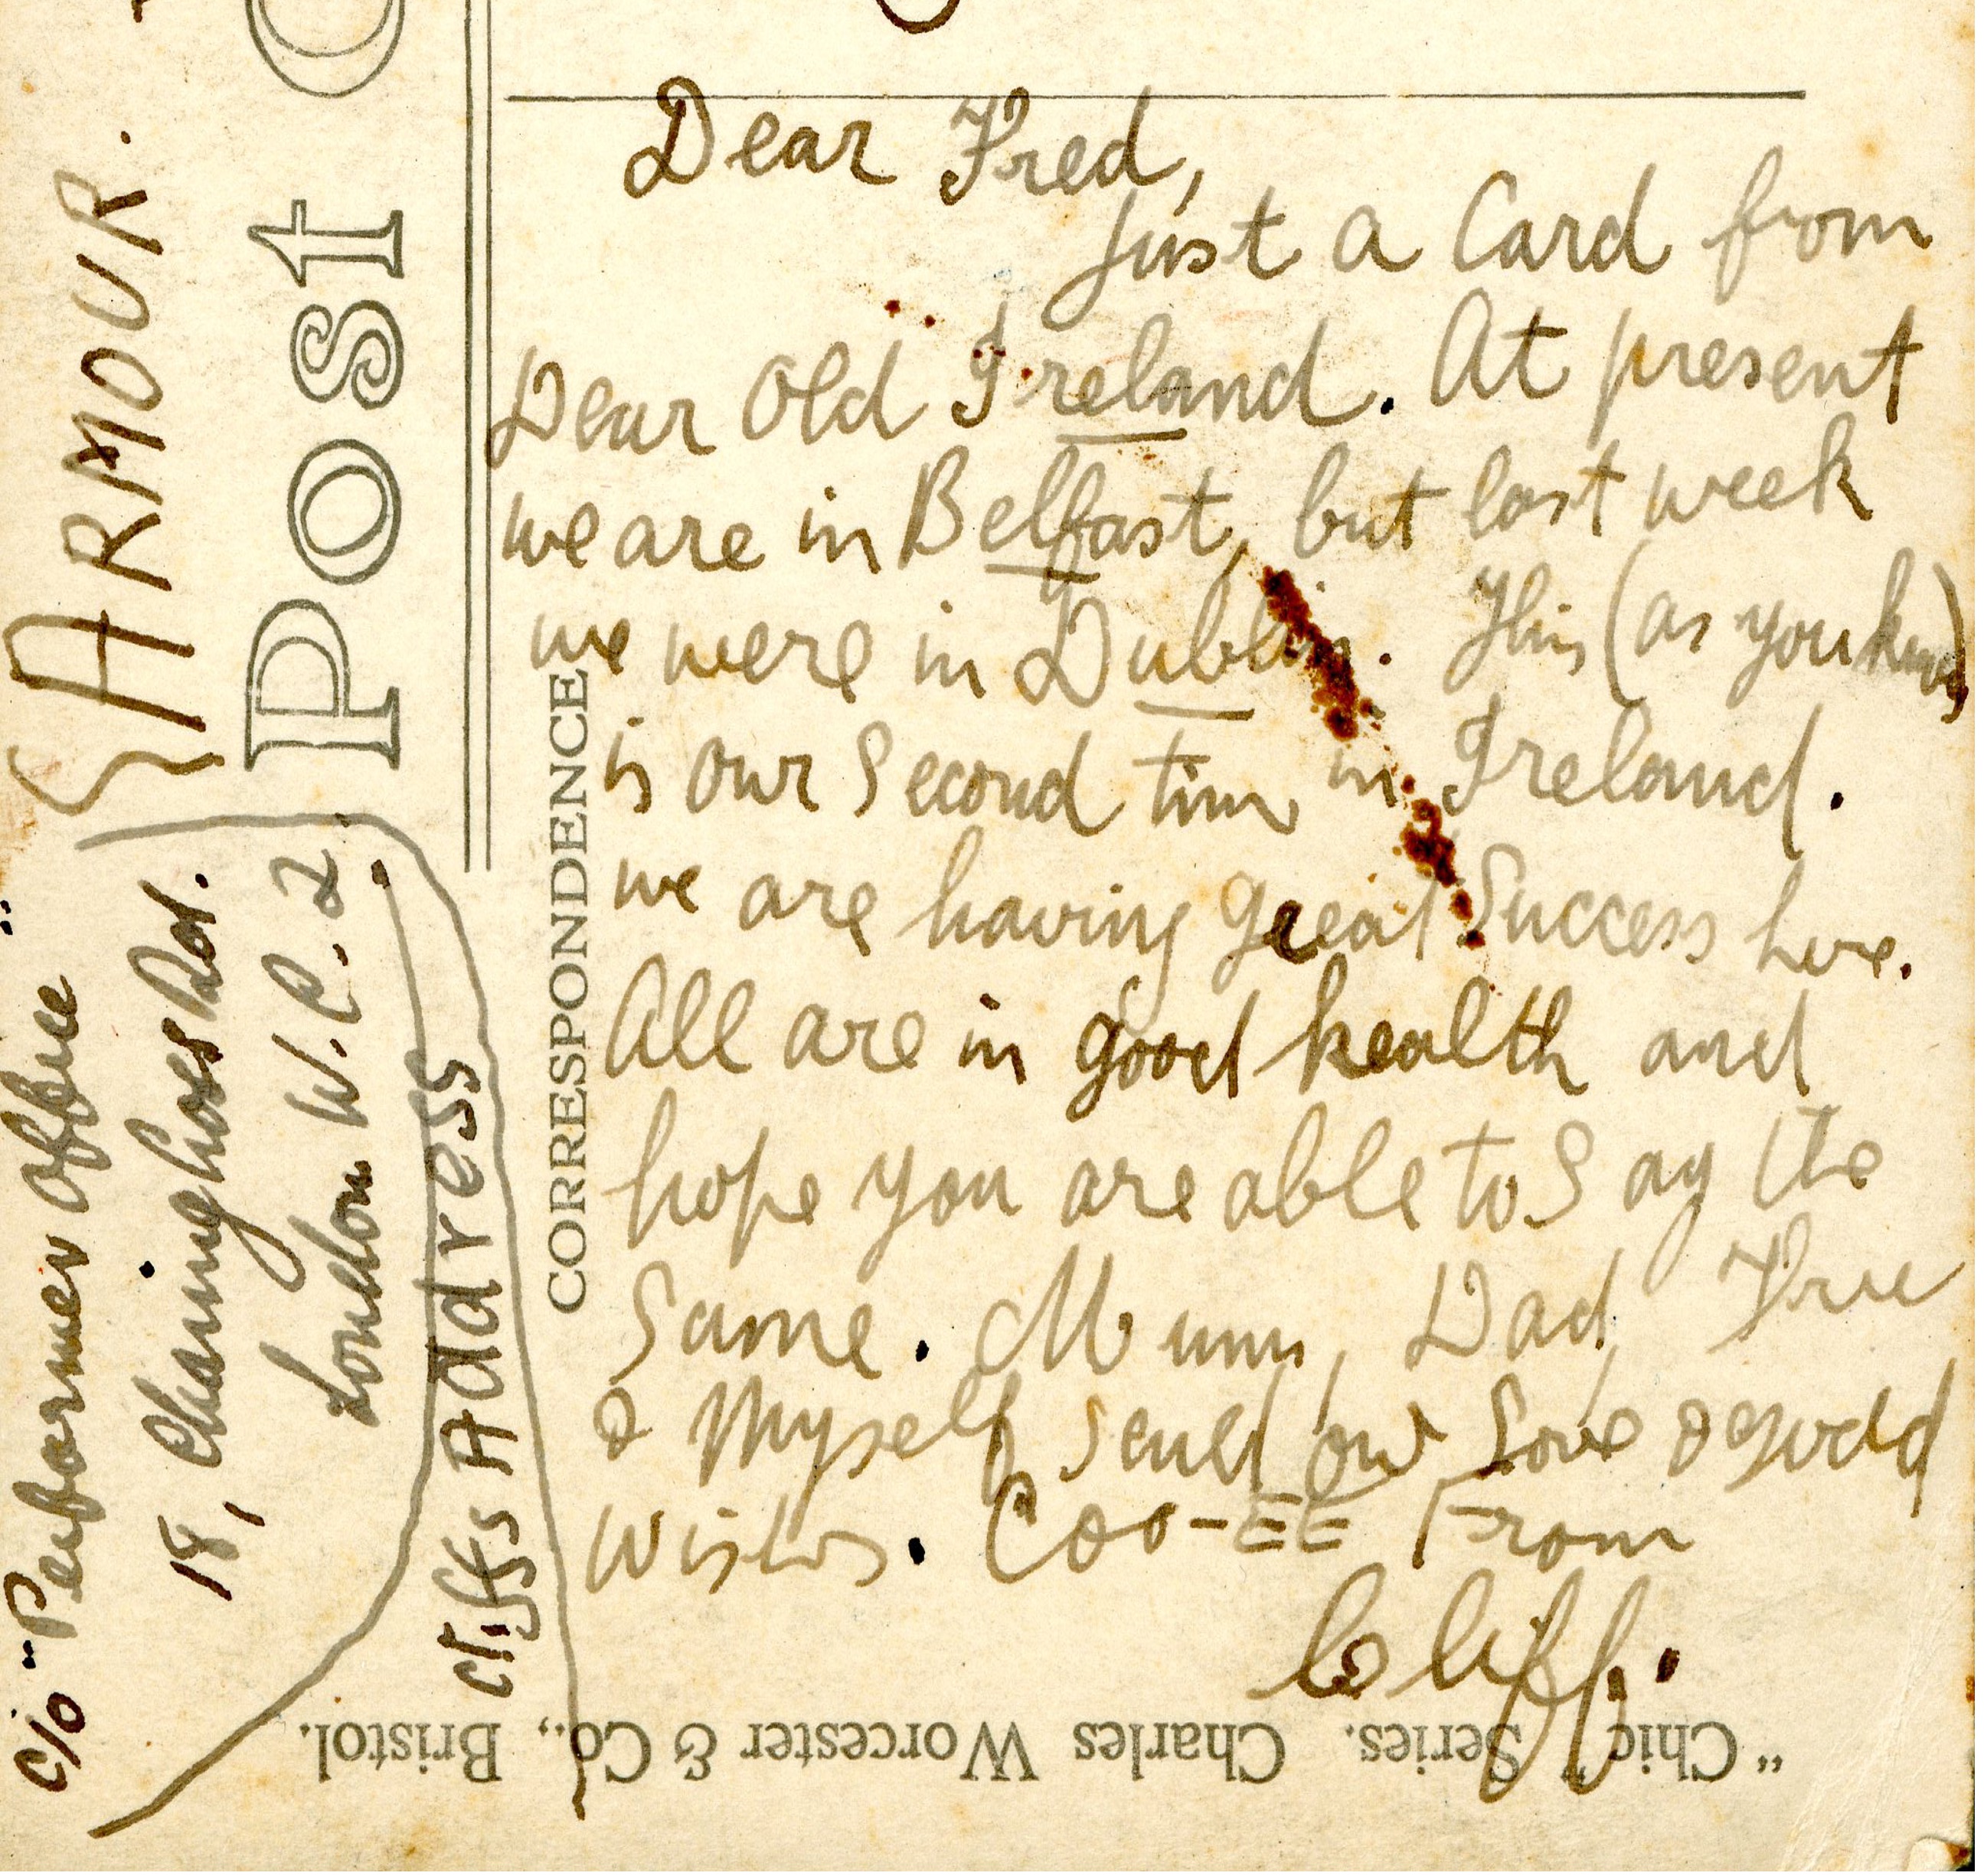 Dear Fred,
Just a Card from
Dear Old Ireland. At present
we are in Belfast, but last week
we were in Dublin. This (as you know)
is our Second time in Ireland.
we are having great Success here.
All are in good health and
hope you are able to Say the
Same. Mum, Dad,
& Myself Send our Love & good
wishes. Coo-EE From
Cliff.
CORRESPONDENCE
Post C
ARMOUR.
c/o "Performer Office"
18, Charinghcross Rd.
London W.C.2
Cliffs Address
"Chic" Series. Charles Worcester & Co., Bristol.